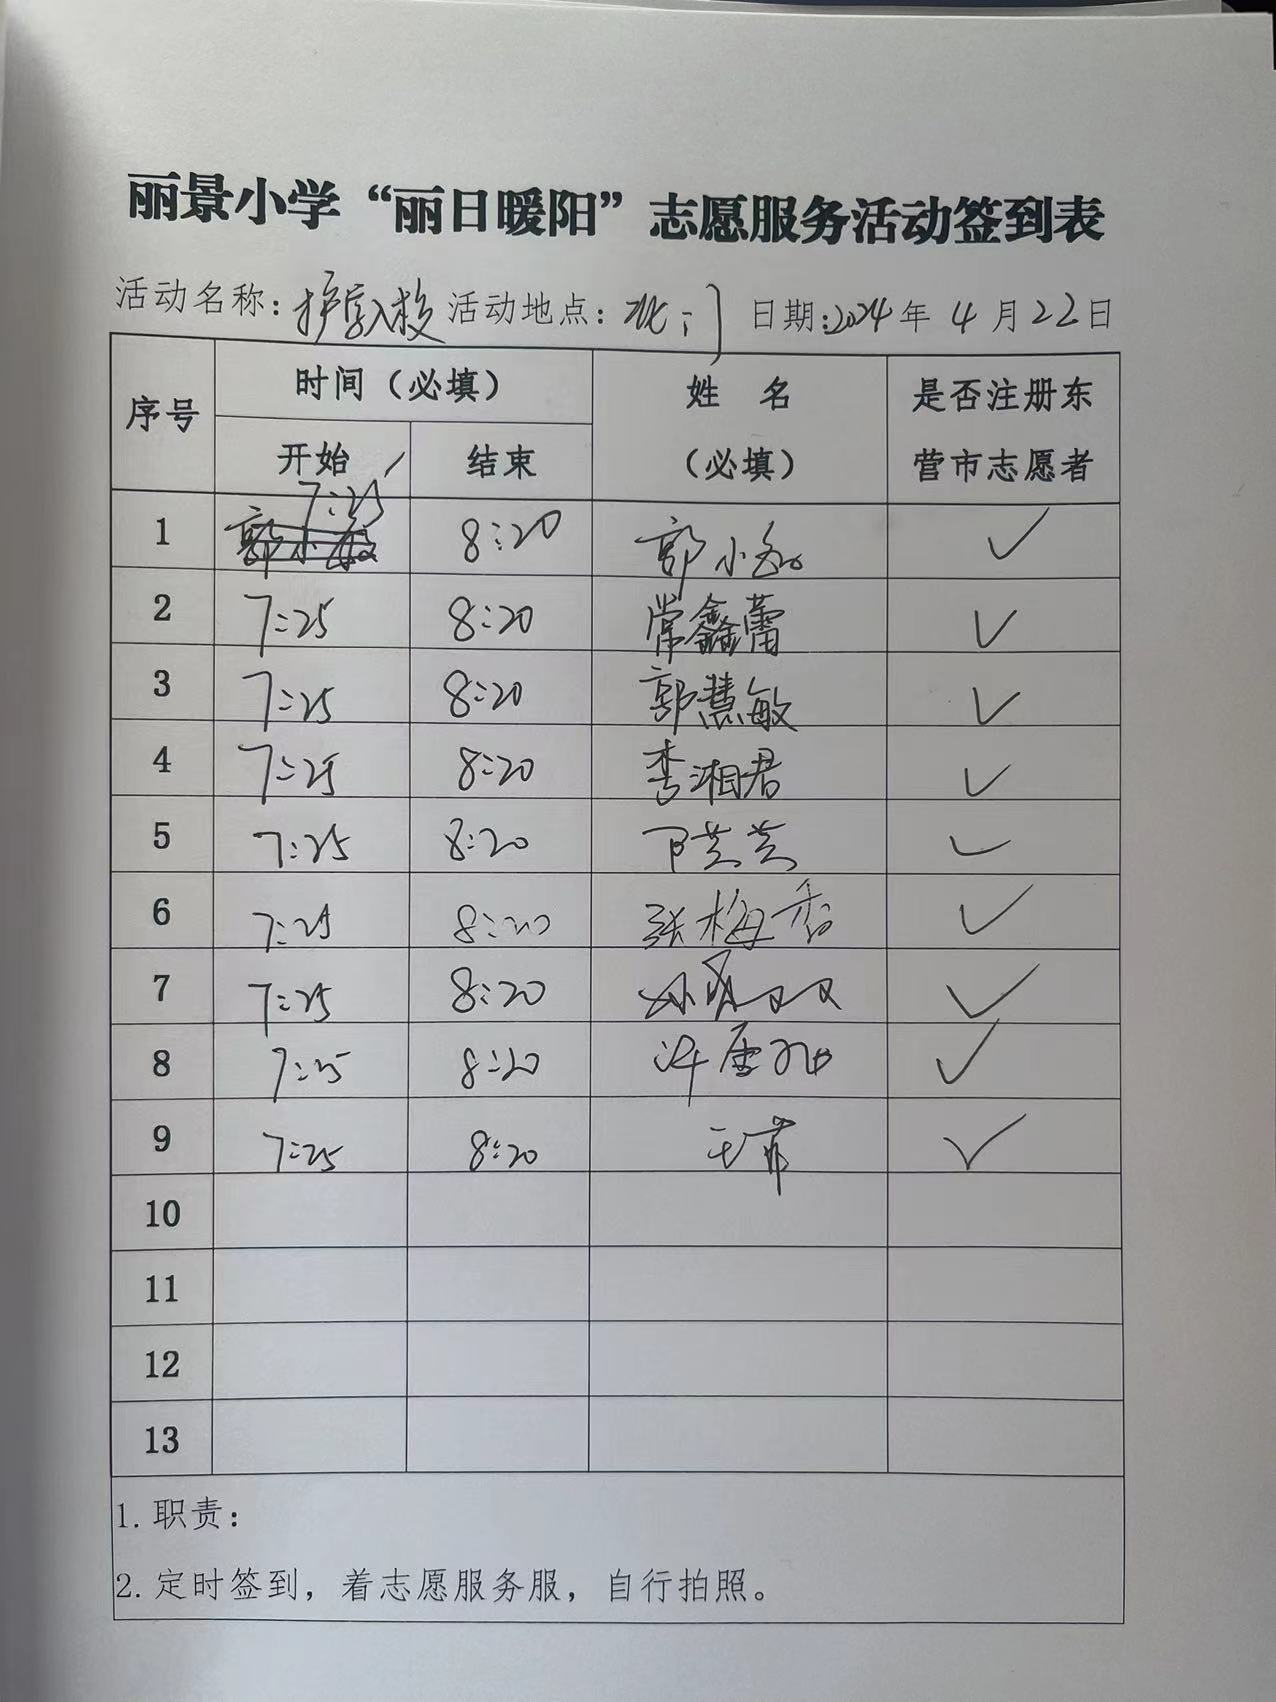 丽景小学“丽日暖阳”志愿服务活动签到表
活动名称：护学入校 活动地点：北门 日期：2024年4月22日
序号 时间（必填） 姓 名（必填） 是否注册东营市志愿者
开始 结束
1 7:25 8:20 郭小 ✓
2 7:25 8:20 常鑫蕾 ✓
3 7:25 8:20 郭慧敏 ✓
4 7:25 8:20 李湘君 ✓
5 7:25 8:20 ✓
6 7:25 8:20 张梅香 ✓
7 7:25 8:20 ✓
8 7:25 8:20 ✓
9 7:25 8:20 王菲 ✓
10
11
12
13
1. 职责：
2. 定时签到，着志愿服务服，自行拍照。